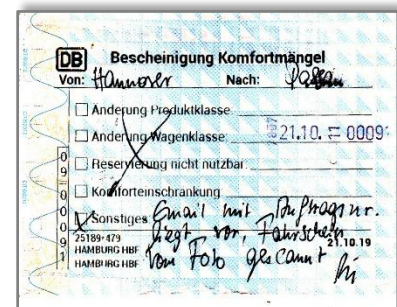 DB Bescheinigung Komfortmängel
Von: Hannover Nach: Passau
Änderung Produktklasse:
Änderung Wagenklasse: 21.10. 0009
Reservierung nicht nutzbar:
Komforteinschränkung
Sonstiges Email mit Auftragsnr.
25189-479 liegt vor, Fahrschein
HAMBURG HBF 21.10.19
HAMBURG HBF vom Foto gescannt
0
9
0
0
0
9
1